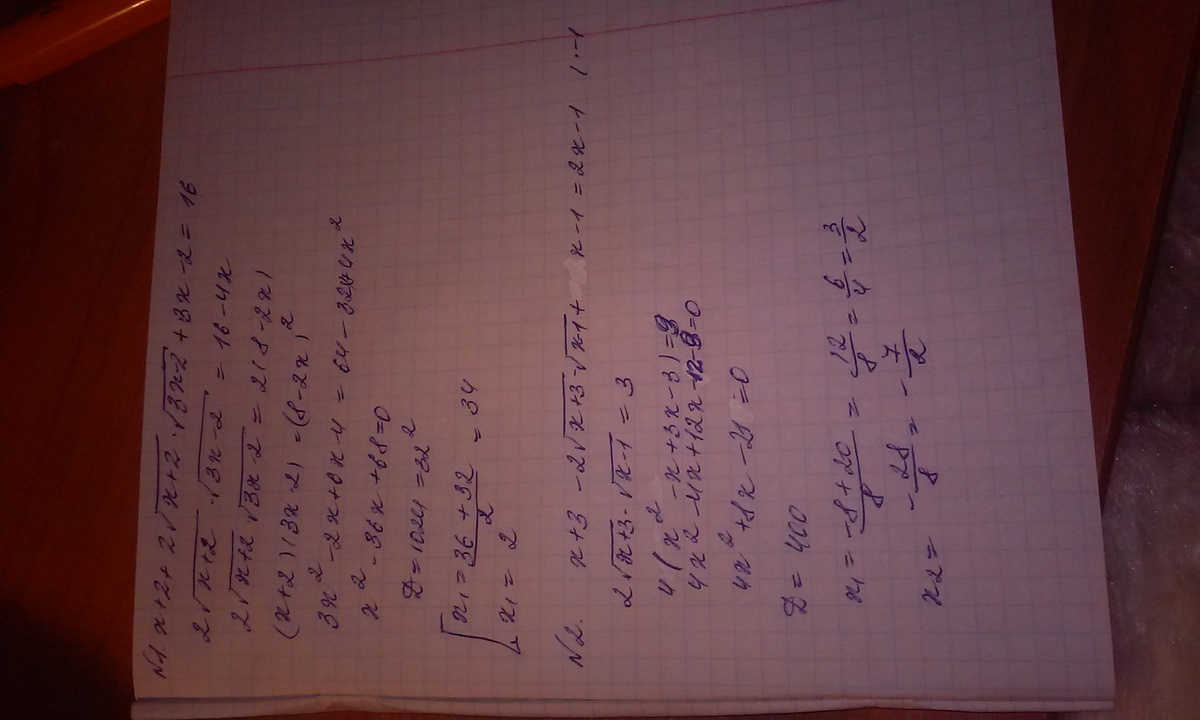 №1. x+2+2√x+2·√3x-2+3x-2=16
2√x+2·√3x-2=16-4x
2√x+2√3x-2=2(8-2x)
(x+2)(3x-2)=(8-2x)²
3x²-2x+6x-4=64-32x+4x²
x²-36x+68=0
D=1024=32²
[x₁=36+32/2=34
x₁=2
№2. x+3-2√x+3·√x-1+x-1=2x-1 |·-1
2√x+3·√x-1=3
4(x²-x+3x-3)=9
4x²-4x+12x-12-9=0
4x²+8x-21=0
D=400
x₁=-8+20/8=12/8=6/4=3/2
x₂=-28/8=-7/2